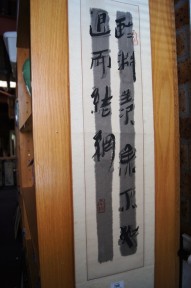 臨渊羨魚不如
退而結網